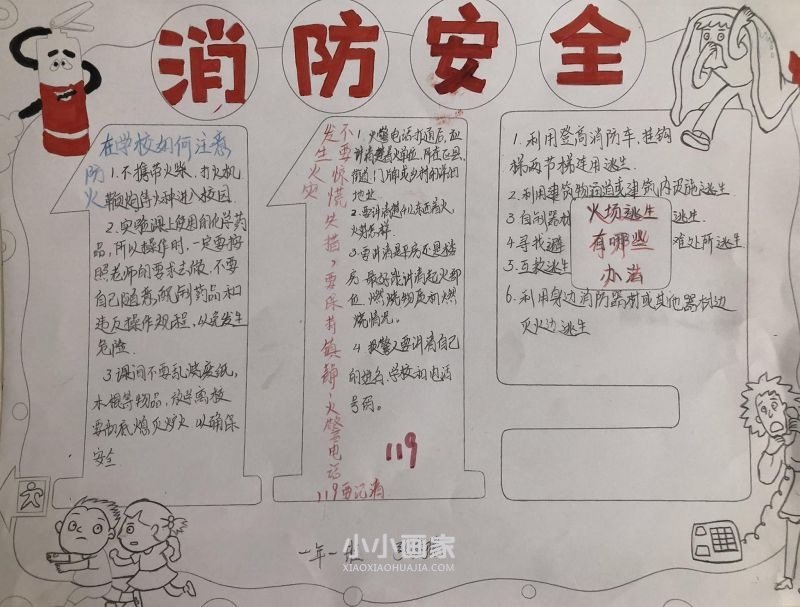 消防安全
在学校如何注意
防火
1.不携带火柴、打火机
鞭炮等火种进入校园.
2.实验课上使用的化学药
品,所以操作时,一定要按
照老师的要求去做,不要
自己随意
药品和
违反操作规程,以免发生
危险.
3.课间不要乱
废纸,
木棍等物品,放学离校
要彻底熄灭炉火以确保
安全
发生火灾
不要惊慌失措,要保持镇静,火警电话
119要记清
1.火警电话打通后,应
讲清楚着火单位,所在区县,
街道、门牌或乡村的详细
地址
2.要讲清
火
3.要讲清是平房还是楼
房,最好能讲清起火部
位,燃烧物质和燃
烧情况。
4.报警人要讲清自己
的姓名、学校和电话
号码。
119
1.利用登高消防车,挂钩
梯两节梯连用逃生.
2.利用建筑物通道或建筑内设施逃生
3.自制器材
逃生.
4.寻找避
难处所逃生
5.互救逃生
6.利用身边消防器材或其他器材边
灭火边逃生
火场逃生
有哪些
办法
一年一班
小小画家
XIAOXIAOHUAJIA.COM